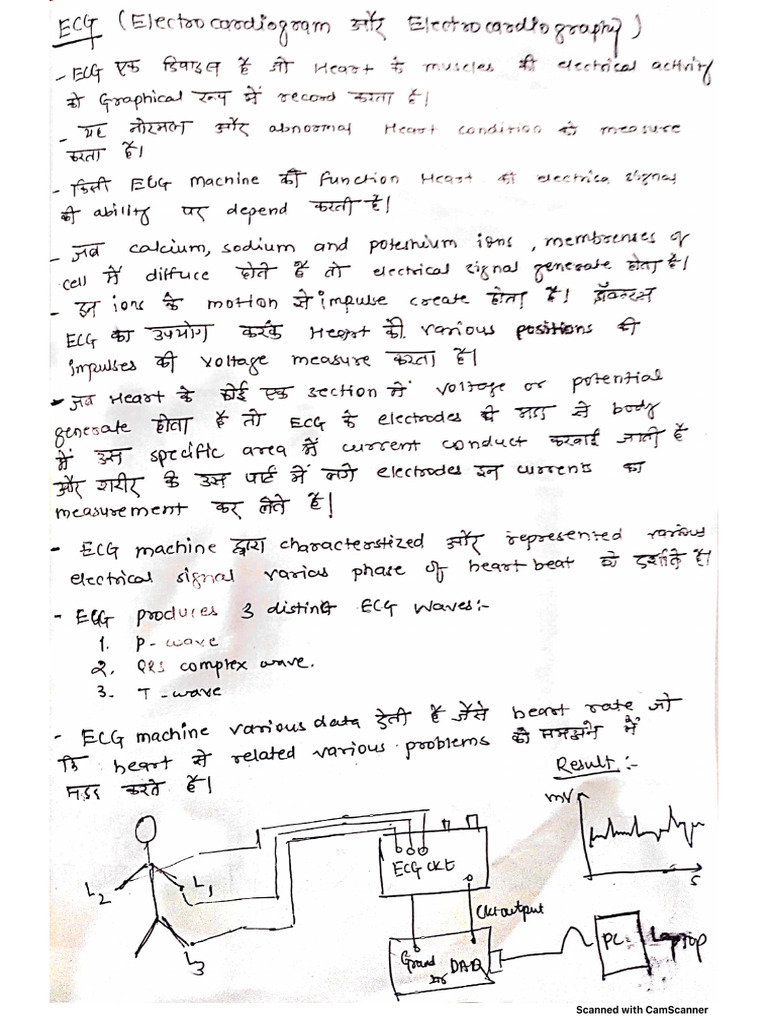 ECG (Electrocardiogram और Electrocardiography)
- ECG एक डिवाइस है जो Heart के muscles की electrical activity
को Graphical रूप में record करता है।
- यह नोरमल और abnormal Heart condition को measure
करता है।
- किसी ECG machine की function Heart की electrica signal
की ability पर depend करती है।
- जब calcium, sodium and potesnium ions, membrenses of
cell में diffuce होते हैं तो electrical signal generate होता है।
- इन ions के motion से impulse create होता है। डॉक्टरस
ECG का उपयोग करके Heart की various positions की
impulses की voltage measure करता है।
- जब Heart के कोई एक section में voltage or potential
generate होता है तो ECG के electrodes की मदद से body
में उस specific area में current conduct करवाई जाती है
और शरीर के उस पार्ट में लगे electrodes इन currents का
measurement कर लेते हैं।
- ECG machine द्वारा characterstized और represented various
electrical signal varios phase of heart beat को दर्शाते है।
- ECG produces 3 distinct ECG waves:-
1. P- wave
2. QRS complex wave.
3. T-wave
- ECG machine various data देती है जैसे heart rate जो
कि heart से related various problems को समझने में
मदद करते हैं।
Result:-
mV
s
ECG CKt
L2
L1
L3
Ckt output
DAQ
PC Laptop
Scanned with CamScanner